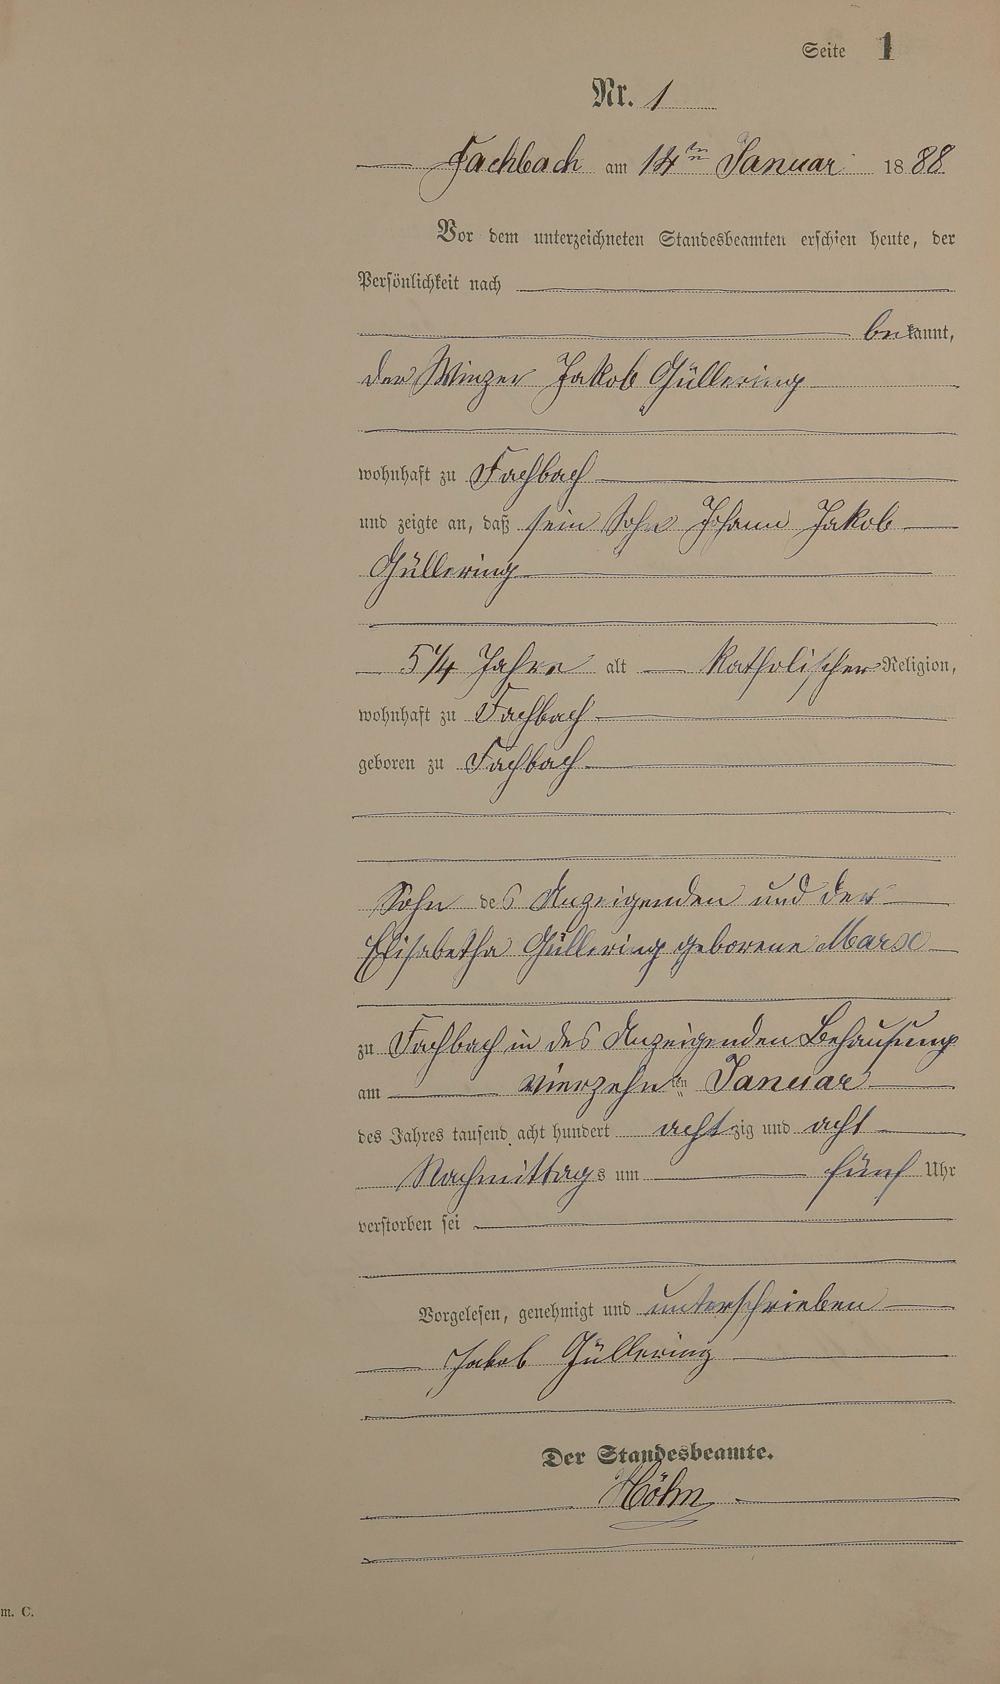 Seite 1
Nr. 1
Fachbach am 14ten Januar 1888
Vor dem unterzeichneten Standesbeamten erschien heute, der
Persönlichkeit nach
bekannt,
der Winzer Jakob Güllering
wohnhaft zu Fachbach
und zeigte an, daß sein Sohn Johann Jakob
Güllering
5 1/4 Jahre alt katholischer Religion,
wohnhaft zu Fachbach
geboren zu Fachbach
Sohn des Anzeigenden und der
Elisabetha Güllering geborene Marx
zu Fachbach in des Anzeigenden Behausung
am vierzehnten Januar
des Jahres tausend acht hundert achtzig und acht
Nachmittags um fünf Uhr
verstorben sei
Vorgelesen, genehmigt und unterschrieben
Jakob Güllering
Der Standesbeamte.
Höhn
m. C.